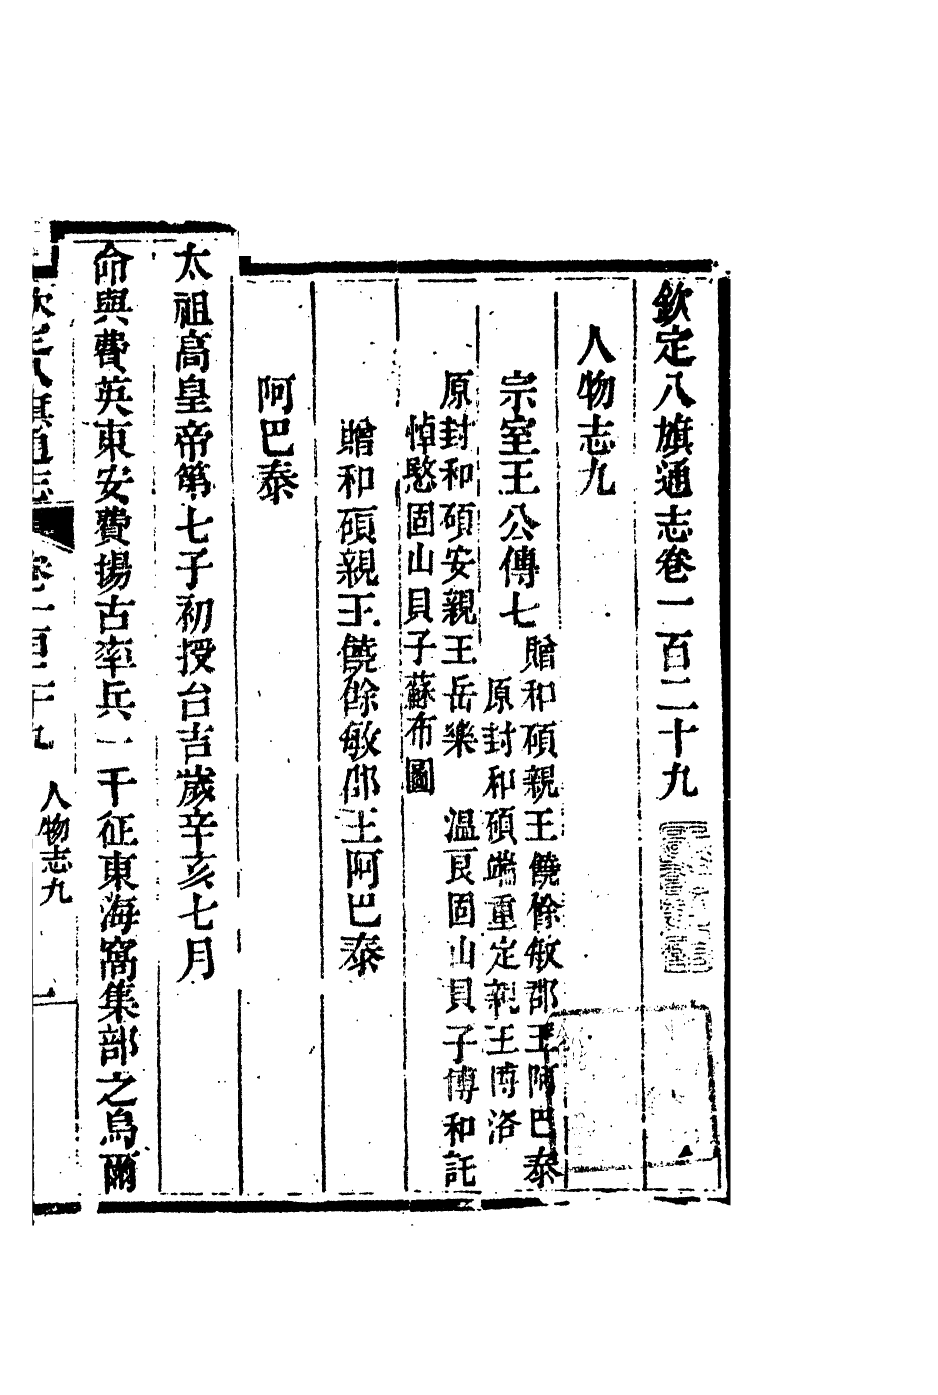 欽定八旗通志卷一百二十九
人物志九
宗室王公傳七
贈和碩親王饒餘敏郡王阿巴泰
原封和碩端重定親王博洛
原封和碩安親王岳樂　溫良固山貝子博和託
悼愍固山貝子蘇布圖
贈和碩親王饒餘敏郡王阿巴泰
阿巴泰
太祖高皇帝第七子初授台吉歲辛亥七月
命與費英東安費揚古率兵一千征東海窩集部之烏爾
欽定八旗通志　卷一百二十九　人物志九　一